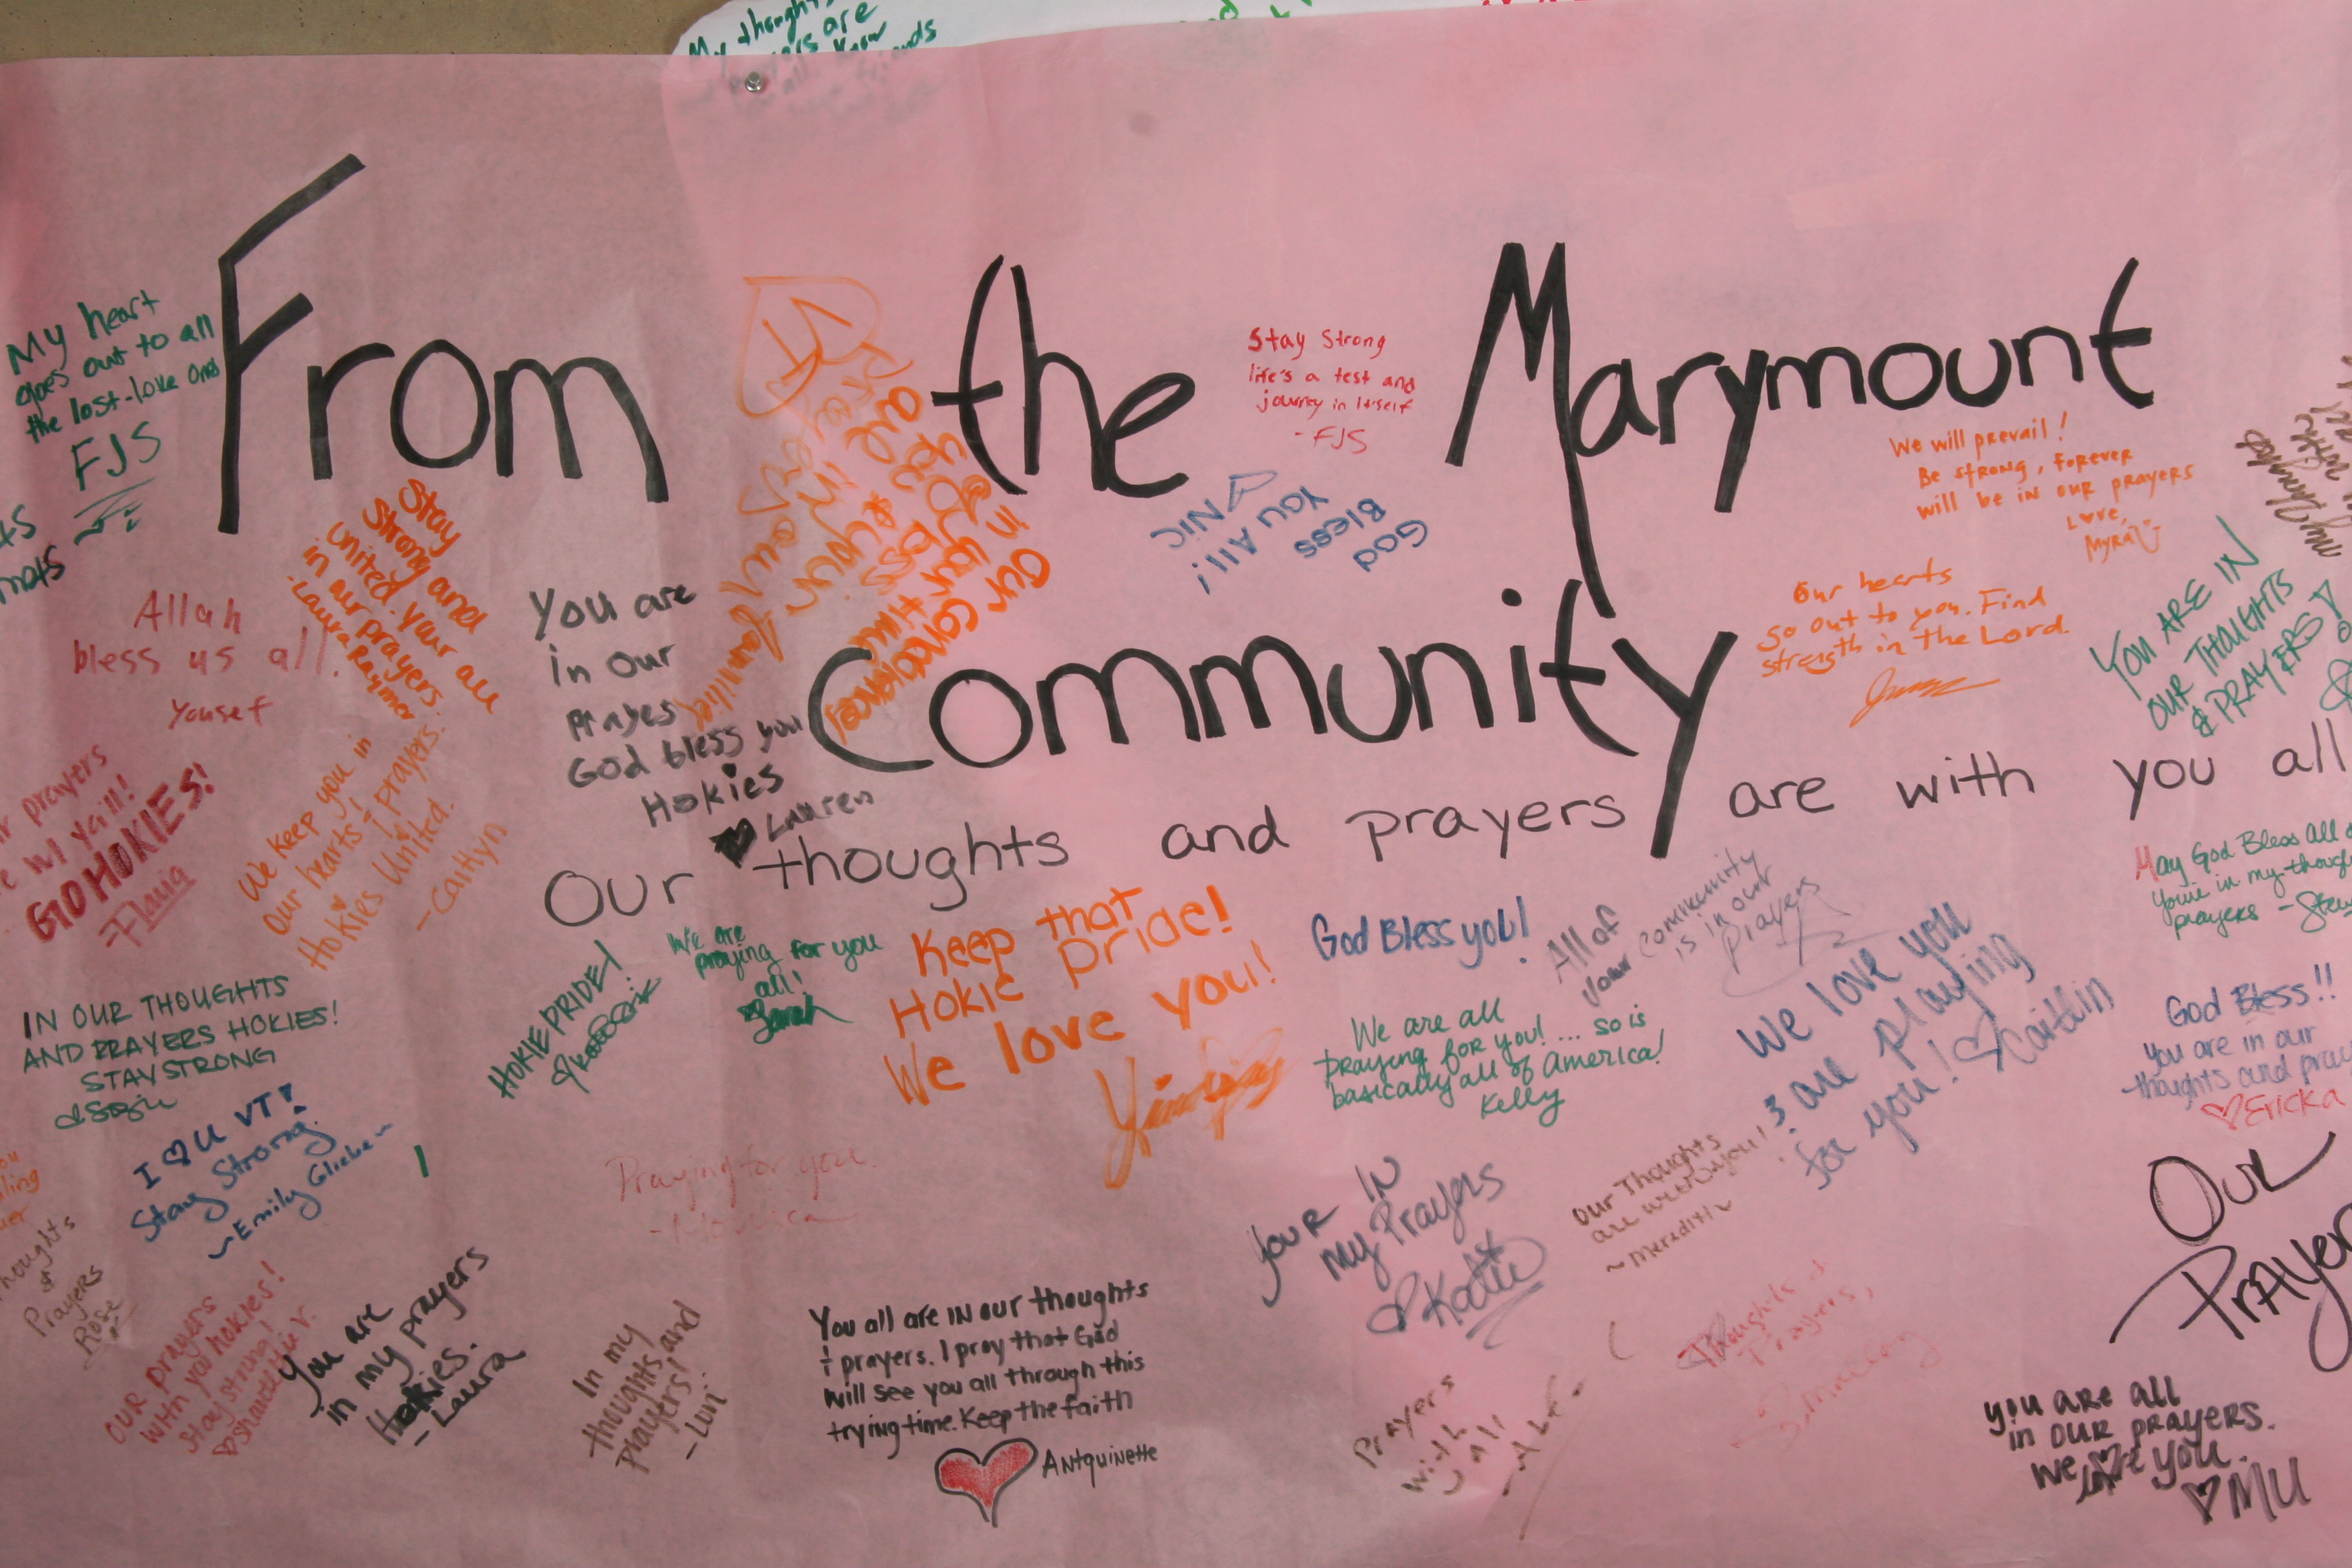 My thoughts
are
From the Marymount
Community
Our thoughts and prayers are with you all
My heart
goes out to all
the lost-love ones
FJS
Stay
Strong and
United. Your all
in our prayers.
-Laura Raymer
Allah
bless us all.
Yousef
You are
in our
prayes
God bless you
Hokies
Lauren
in our
families
Stay Strong
life's a test and
journey in itself
-FJS
God
Bless
You All!!
NIC
We will prevail!
Be strong, forever
will be in our prayers
Love,
Myra
Our hearts
go out to you. Find
strength in the Lord.
YOU ARE IN
OUR THOUGHTS
& PRAYERS!
prayers
w/ y'all!
GO HOKIES!
We keep you in
our hearts & prayers!
Hokies United.
-Caitlyn
IN OUR THOUGHTS
AND PRAYERS HOKIES!
STAY STRONG
HOKIE PRIDE!
We are
praying for you
all!
Sarah
Keep that
Hokie Pride!
We love you!
God Bless you!
All of
your community
is in our
prayers
We are all
praying for you! ... so is
basically all of America!
Kelly
We love you
& are praying
for you! Caitlin
May God Bless all
You're in my
prayers
God Bless!!
You are in our
thoughts and
Ericka
I ♡ U VT!
Stay Strong.
~Emily
Praying for you.
Your in
my Prayers
Katie
Our Thoughts
are with you!
~Meredith~
Our
Thoughts
&
Prayers
Rose
Our prayers
with you hokies!
Stay strong!
You are
in my prayers
Hokies.
-Laura
In my
thoughts and
prayers!
-Lori
You all are IN our thoughts
& prayers. I pray that God
will see you all through this
trying time. Keep the faith
Antquinette
Prayers
with
y'all
Thoughts &
Prayers,
you are all
in our prayers.
We love you.
♡MU